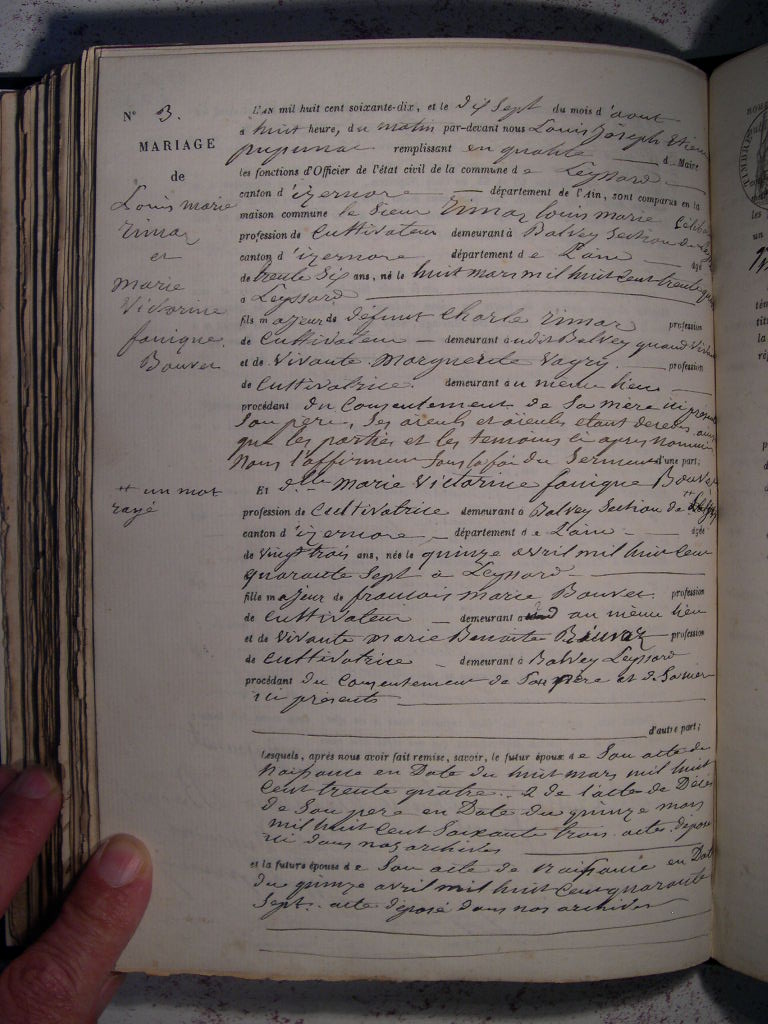 N° 3.
MARIAGE
de
Louis marie
Rimaz
et
marie
Victorine
fanique
Bouvet
** un mot
rayé
L'AN mil huit cent soixante-dix, et le dix Sept du mois d'aout
à huit heure, du matin par-devant nous Louis Joseph
remplissant en qualité d Maire
les fonctions d'Officier de l'état civil de la commune de Leyssard
canton d'izernore département de l'Ain, sont comparus en la
maison commune le Sieur Rimaz louis marie
profession de Cultivateur demeurant à Balvey Section de
canton d'izernore département de L'ain âgé
de trente Six ans, né le huit mars mil huit cent trente
à Leyssard
fils majeur de défunt Charle Rimaz profession
de Cultivateur demeurant audit Balvey quand vivait
et de vivante Marguerite Vagry profession
de Cultivatrice. demeurant au meme lieu
procédant du Consentement de Sa mère ici présente
Son père, Ses aïeuls et aïeules etant décédés ainsi
que les parties et les temoins ci apres nommés
Nous l'affirment Sous la foi du Serment d'une part;
Et dlle Marie Victorine fanique Bouvet
profession de Cultivatrice demeurant à Balvey Section de **
canton d'izernore département de L'ain âgée
de vingt trois ans, née le quinze avril mil huit cent
quarante Sept à Leyssard
fille majeur de francois marie Bouvet profession
de Cultivateur demeurant au meme lieu
et de vivante marie Benoite profession
de Cultivatrice demeurant à Balvey Leyssard
procédant du Consentement de Son père et de Sa mère
ici présents
d'autre part;
Lesquels, après nous avoir fait remise, savoir, le futur époux de Son acte de
Naissance en Date du huit mars mil huit
Cent trente quatre 2 de l'acte de Décès
de Son pere en Date du quinze mars
mil huit Cent Soixante trois acte déposé
ici dans nos archives
et la future épouse de Son acte de naissance en Date
du quinze avril mil huit Cent quarante
Sept. acte déposé dans nos archives